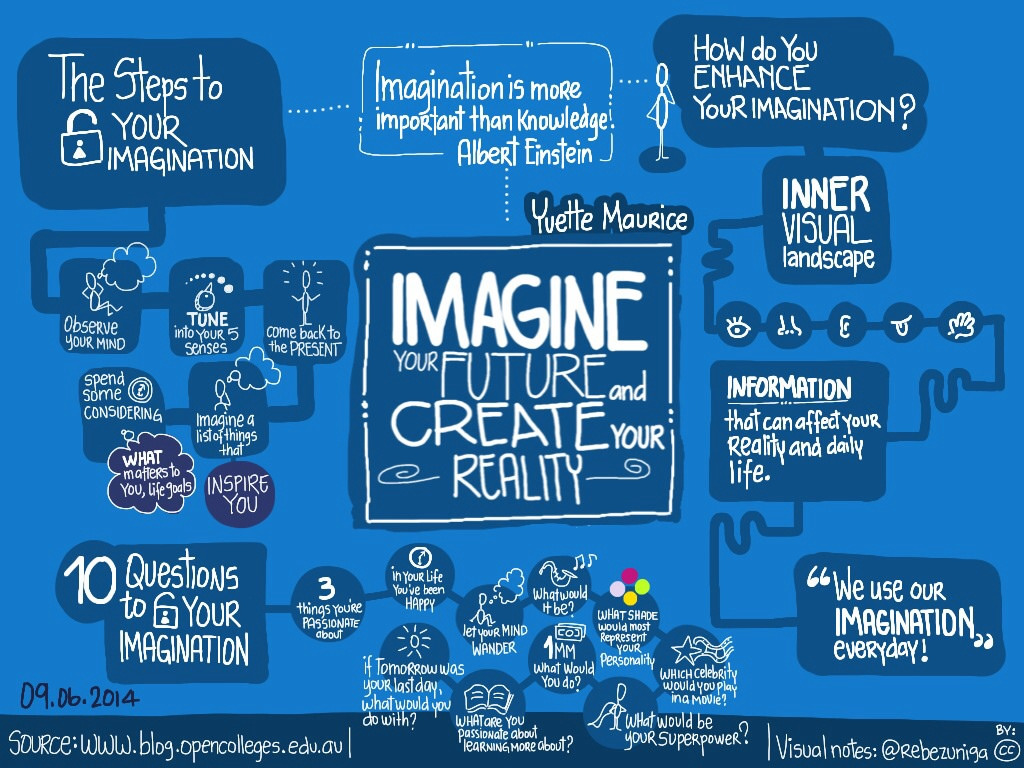 The Steps to
YOUR
IMAGINATION
Imagination is more
important than Knowledge.
Albert Einstein
How do You
ENHANCE
YOUR IMAGINATION?
INNER
VISUAL
landscape
Yvette Maurice
IMAGINE
YOUR FUTURE and
CREATE YOUR
REALITY
Observe
YOUR MIND
TUNE
into YOUR 5
senses
come back to
the PRESENT
spend
some
CONSIDERING
WHAT
matters to
You, life goals
Imagine a
list of things
that
INSPIRE
YOU
INFORMATION
that can affect your
Reality and daily
life.
“We use our
IMAGINATION
everyday!”
10 Questions
to YOUR
IMAGINATION
3
things you're
PASSIONATE
about
in Your Life
You've been
HAPPY
let your MIND
WANDER
What would
it be?
WHAT SHADE
would most
Represent
your
Personality
if Tomorrow was
your last day,
what would you
do with?
WHAT ARE YOU
Passionate about
learning more about?
1MM
What Would
You do?
WHICH celebrity
would you play
in a movie?
What would be
your Superpower?
09.06.2014
Source: www.blog.opencolleges.edu.au |
| Visual notes: @Rebezuniga
BY:
CC